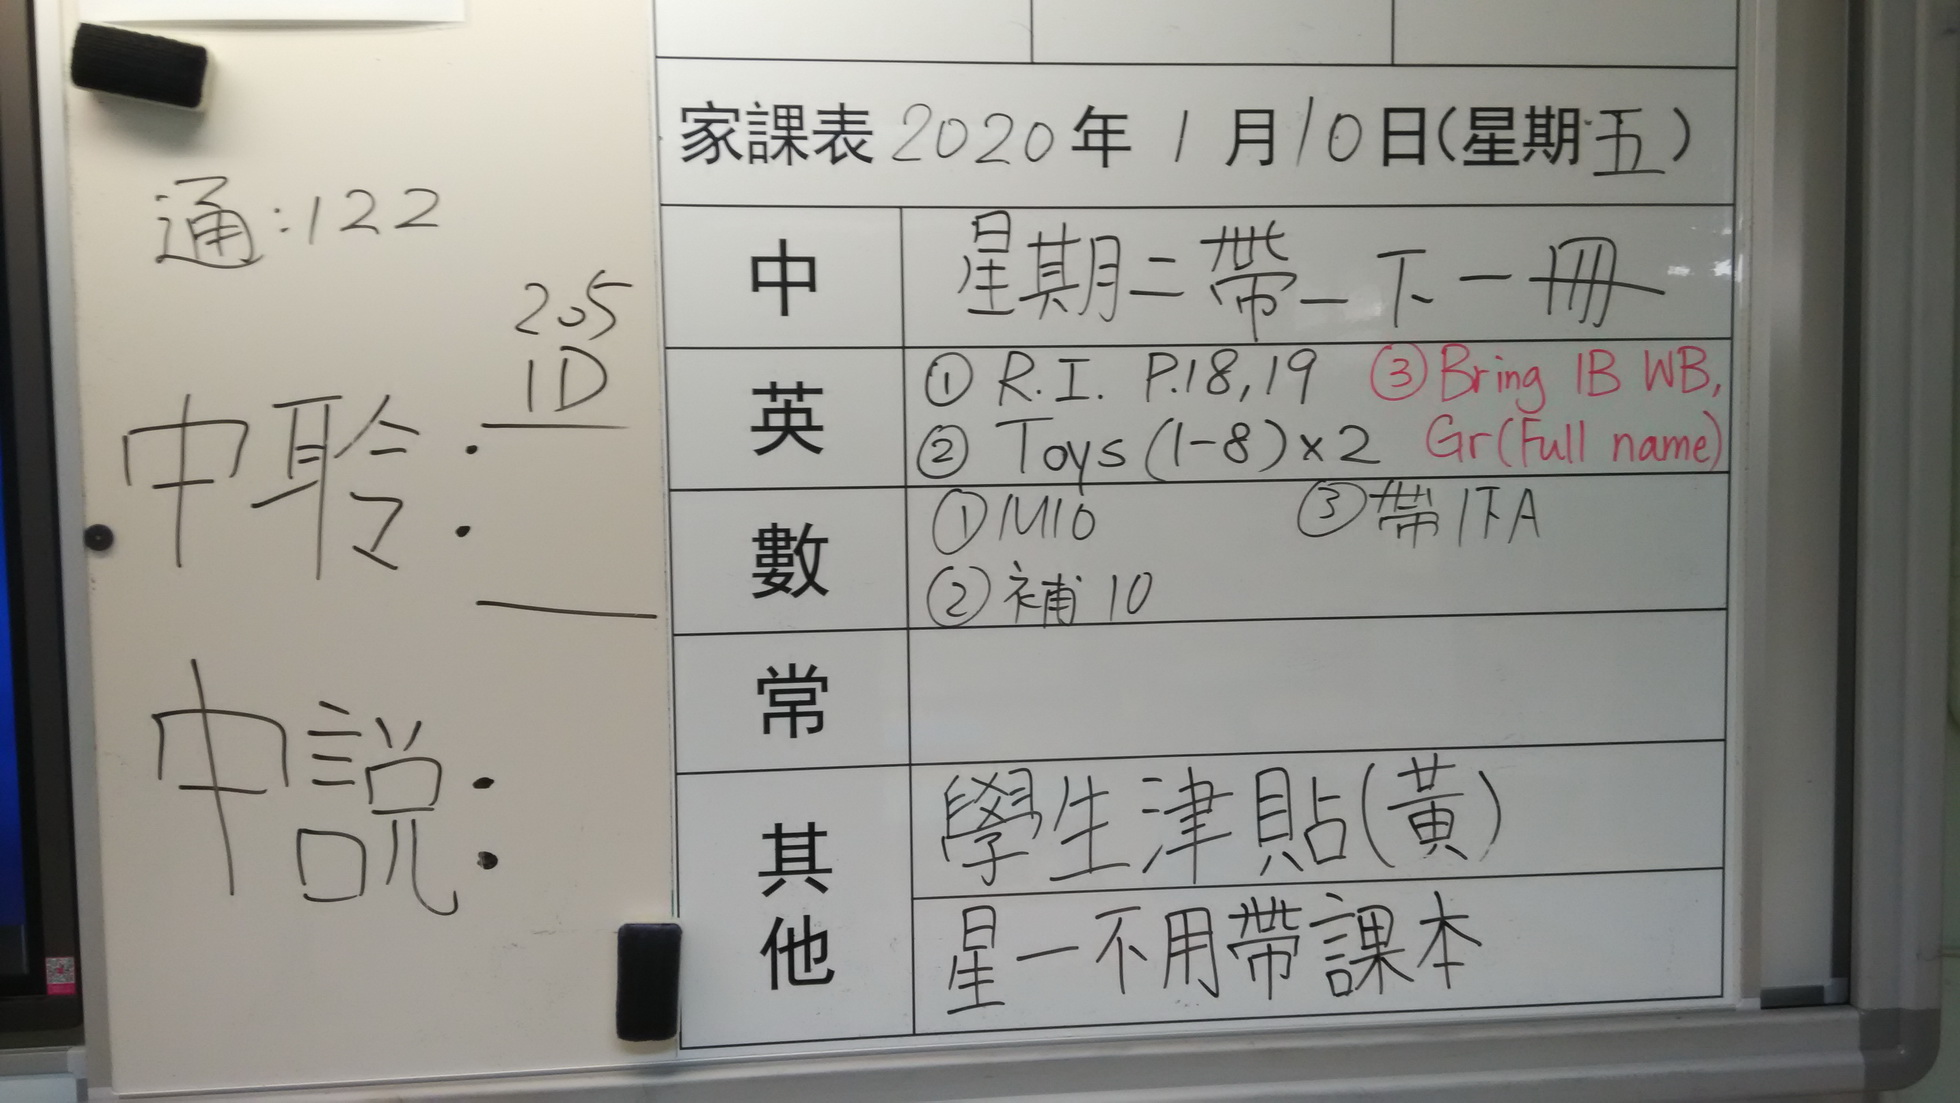 家課表 2020年 1月10日(星期五)
中 星期二帶一下一冊
英 ① R.I. P.18,19 ③ Bring 1B WB,
② Toys (1-8)×2 Gr(Full name)
數 ① M10 ③ 帶1下A
② 補10
常
其他 學生津貼(黃)
星一不用帶課本
通:122
205
1D
中聆:
中說: